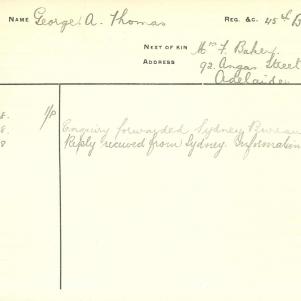 NAME George A. Thomas REG. &C. 45th B
NEXT OF KIN Mrs F. Baker
ADDRESS 92. Angas Street
Adelaide
8. 1/P
8. Enquiry forwarded Sydney Bureau
8 Reply received from Sydney. Information